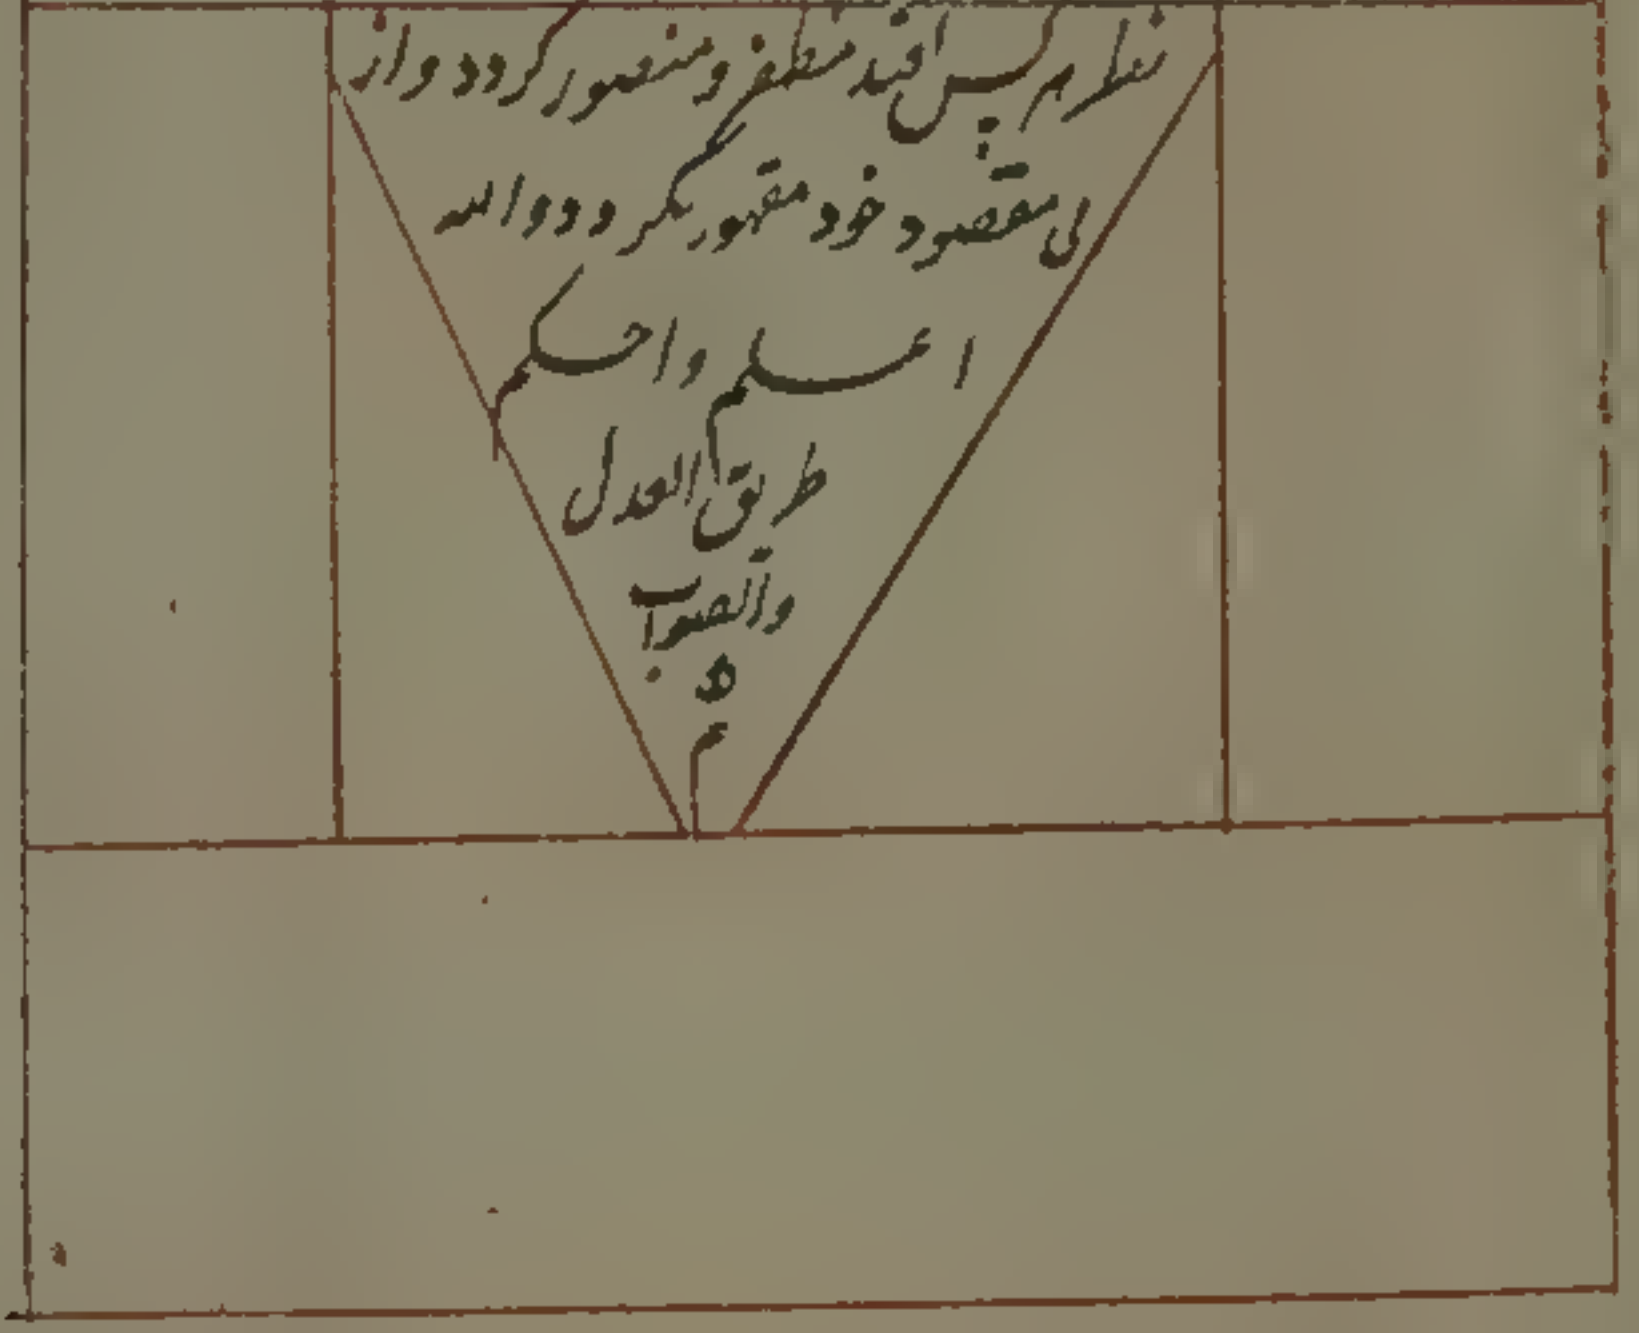 نظر هر کس افتد مظفر و منصور گردد و از
لی مقصود خود مقهور نکردد والله
اعلم واحکم
طریق العدل
والصواب
م